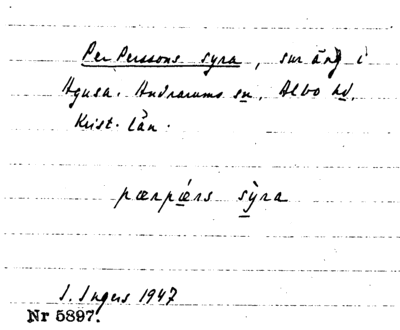 Per Perssons syra, sur äng i
Hgusa. Andrarums sn, Albo hd,
Krist. län.
pærpǽrs sỳra
I. Ingers 1947
Nr 5897.